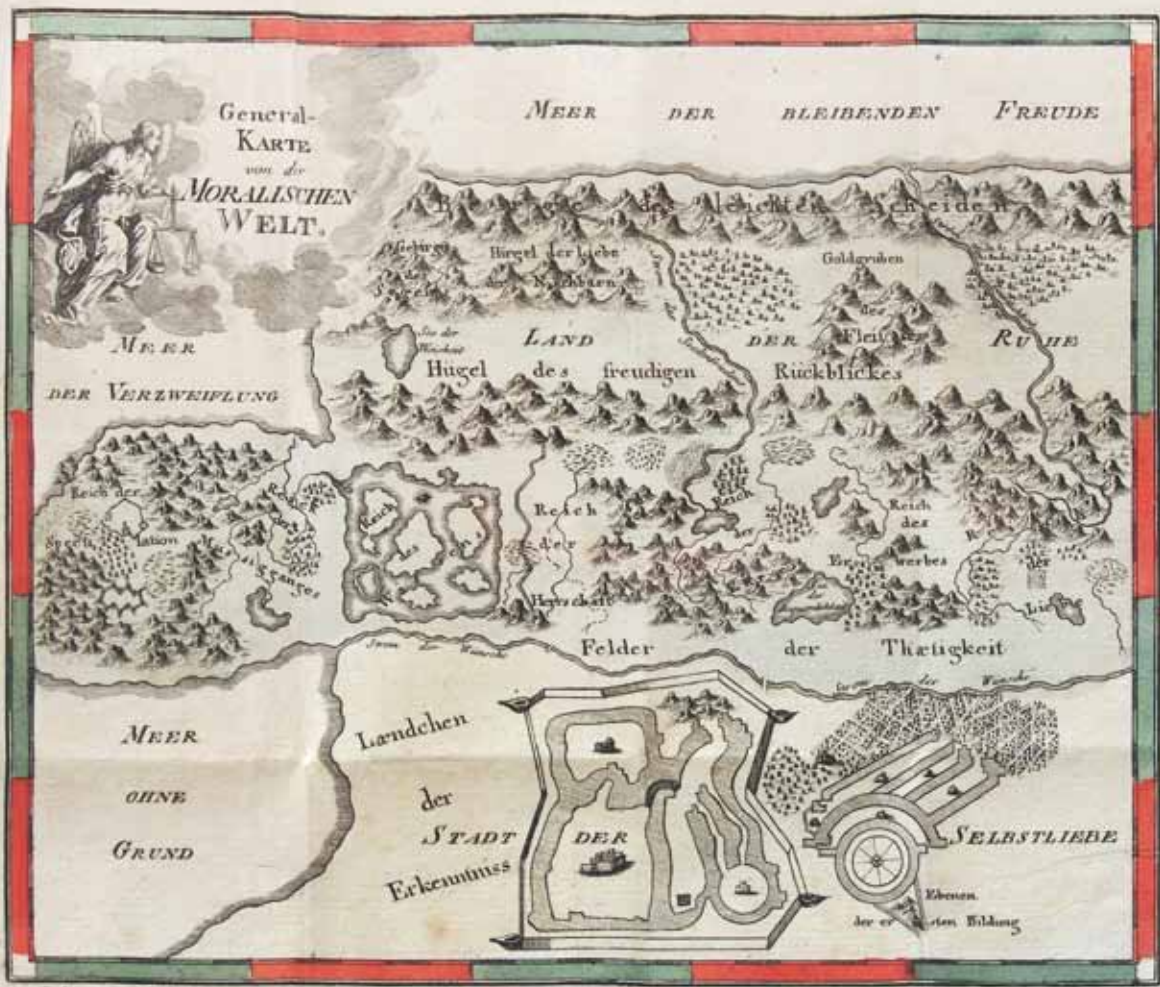 General-
KARTE
von der
MORALISCHEN
WELT.
MEER DER BLEIBENDEN FREUDE
des leichten Scheiden
Gebirge
Hügel der Liebe
der Nachbarn
Goldgruben
des
Fleis
MEER
DER VERZWEIFLUNG
See der
LAND DER RUHE
Hügel des freudigen Rückblickes
Reich der
lation
Reich
der
Reich
des
Reich
der
Herrschaft
Reich
der
Reich
des
Er werbes
R
der
Lie
Felder der Thætigkeit
Strom der Wünsche
Strom der Wünsche
MEER
OHNE
GRUND
Lændchen
der
Erkenntniss
STADT DER SELBSTLIEBE
Ebenen
der er sten Bildung